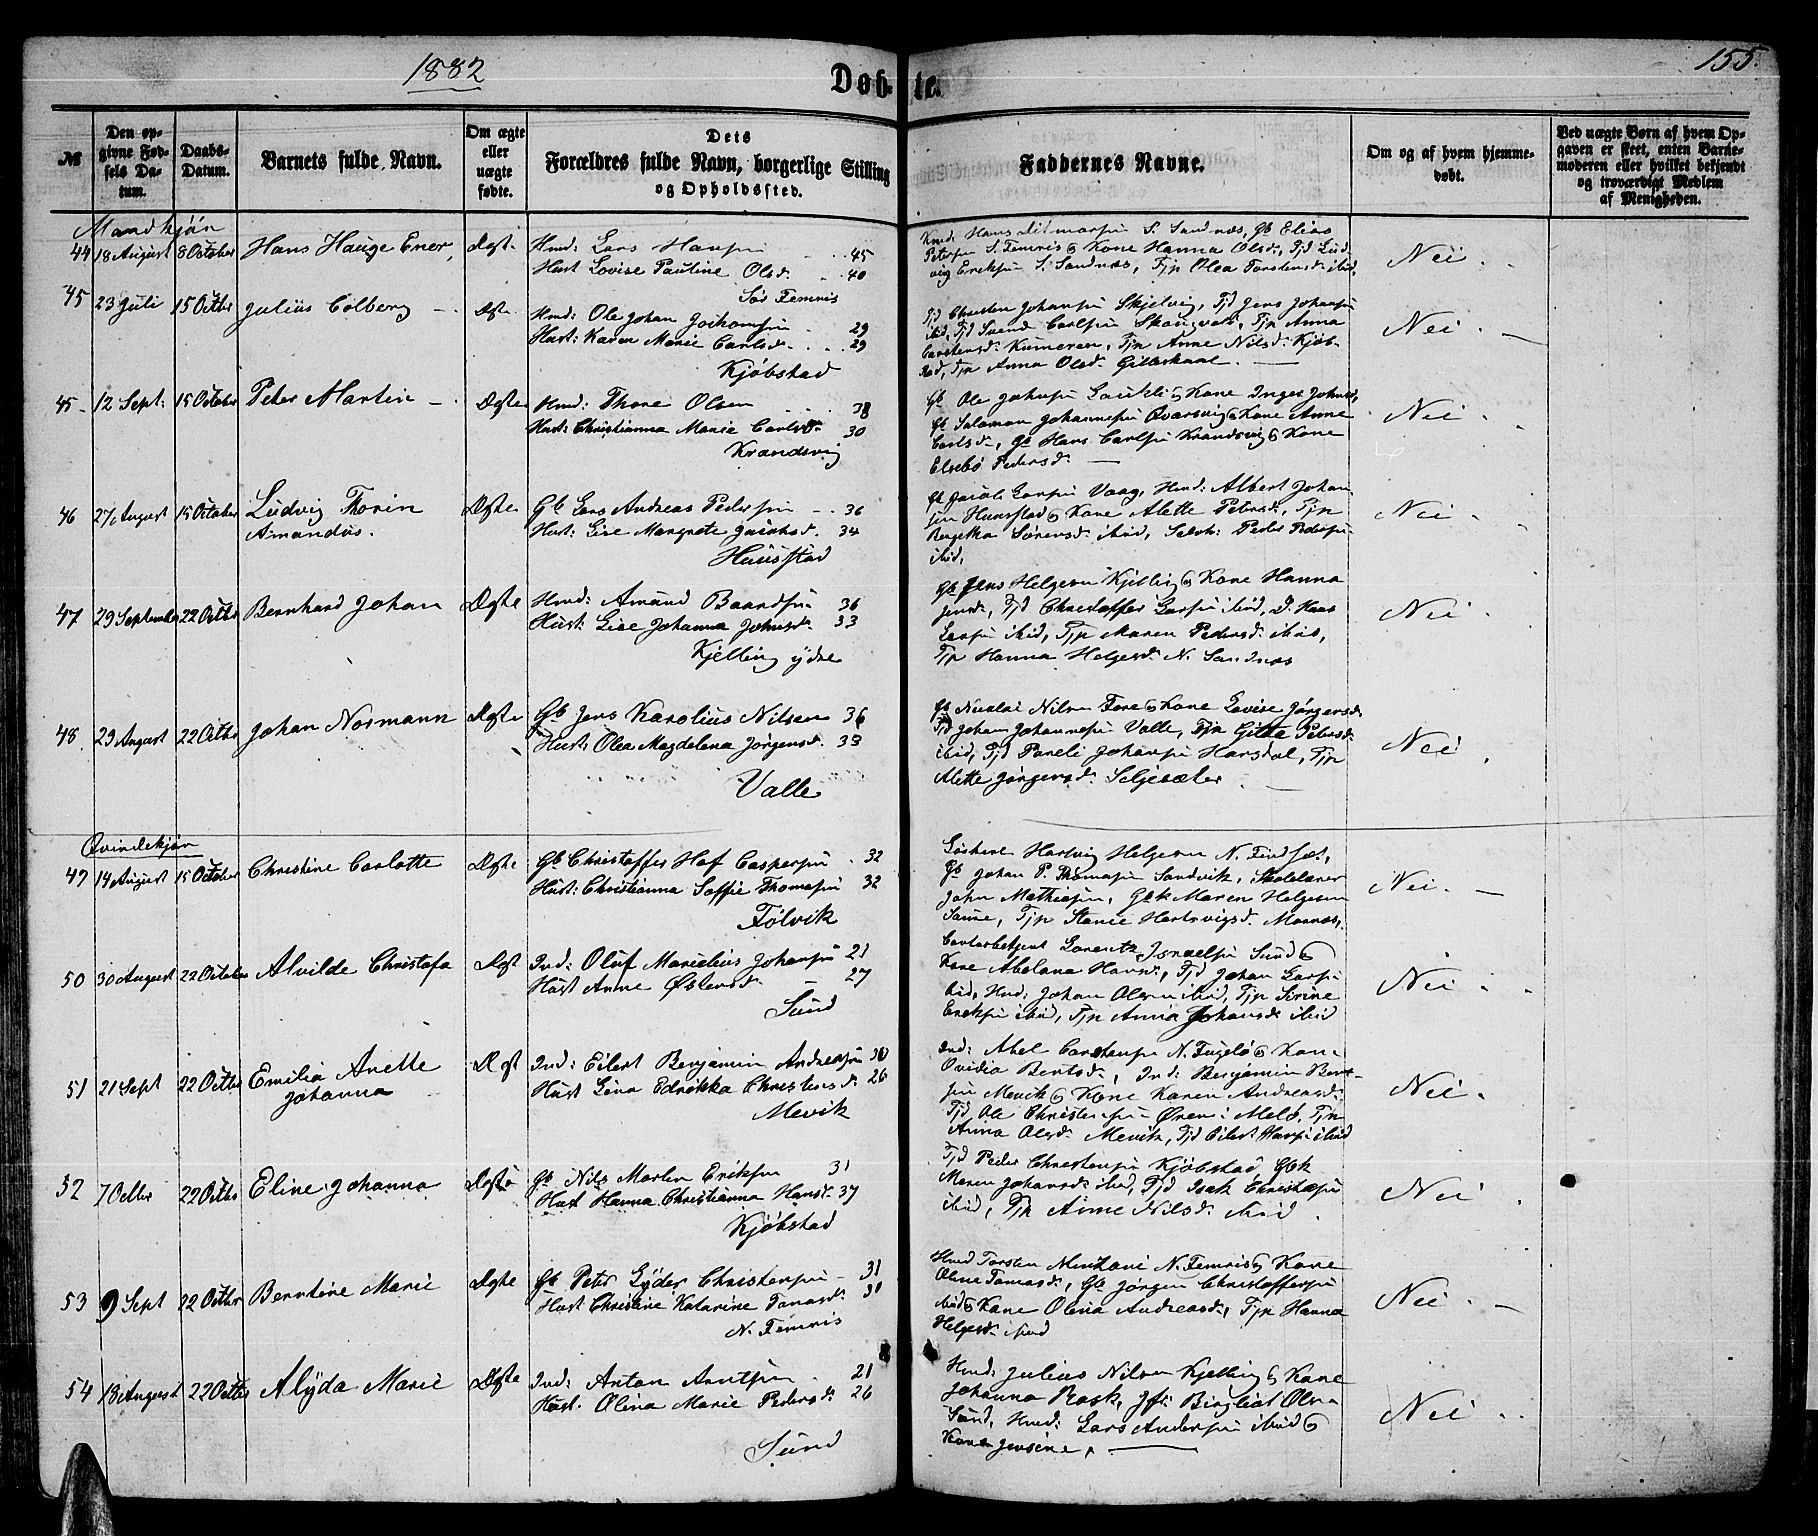 1882
Døbte.
155.
№
Den opgivne Fødsels Datum.
Daabs-Datum.
Barnets fulde Navn.
Om ægte eller uægte fødte.
Dets Forældres fulde Navn, borgerlige Stilling og Opholdssted.
Faddernes Navne.
Om og af hvem hjemmedøbt.
Ved uægte Børn af hvem Opgaven er skeet, enten Barnemoderen eller hvilket bekjendt og troværdigt Medlem af Menigheden.
Mandkjøn
44 18 August 8 October Hans Hauge Ener, Ægte Hmd: Lars Hansen 45
Hust Lovise Pauline Olsd. 40
Sør Femris
Kmd: Hans Ditmarsen S. Sandnes, Gb Elias
Petersen S. Femris & Kone Hanna Olsd., Tjd Lud-
vig Eriksen S. Sandnes, Tjp Olea Torstensd. ibid.
Nei
45 23 Juli 15 Octbr Julius Colberg Ægte Hmd: Ole Johan Joihansen 29
Hust: Karen Marie Carlsd. 29
Kjøbstad
Tjd Christen Johansen Skjelvig, Tjd Jens Johansen
ibid, Tjd Svend Carlsen Tjp Anna
Carstensd. Kumeren, Tjp Anne Nilsd. Kjøb-
stad, Tjp Anna Olsd. Gilleskaal.
Nei
45 12 Sept: 15 October Peter Martin Ægte Hmd: Thore Olsen 38
Hust: Christianna Marie Carlsdt. 30
Krandsvig
Gb Ole Johansen & Kone Inger Johnsd,
Gb Salamon Johannesen Qvarsvig & Kone Anne
Carlsd., Gb Hans Carlsen Krandsvig & Kone
Elsebø Pedersd.
Nei
46 27 August 15 October Ludvig Thorin Amandus. Ægte Gb Lars Andreas Pedersen 36
Hust: Lise Margrete Jacobsd. 34
Hunstad
Gb Jacob Larsen Vaag, Hmd: Albert Johan-
sen Hunstad & Kone Alette Petersd, Tjp
Bergetha Sørensd. ibid, Selvst: Peder Pedersen
ibid.
Nei
47 29 September 22 Octbr Bernhard Johan Ægte Hmd: Amund Baardsen 36
Hust: Lise Johanna Johnsd. 33
Kjelling ydre
Gb Jens Helgesen Kjelling & Kone Hanna
Jensd., Tjd Christoffer Larsen ibid, D. Hans
Larsen ibid, Tjp Maren Pedersd. ibid,
Tjp Hanna Helgesd. N. Sandnæs
Nei
48 29 August 22 Octbr Johan Normann Ægte Gb Jens Karolius Nilsen 36
Hust: Olea Magdelena Jørgensd. 33
Valle
Gb Nicolai Nilsen Fore & Kone Lovise Jørgensd.
Tjd Johan Johannesen Valle, Tjp Gitta Petersd.
ibid, Tjd Paneli Johansen Harsdal, Tjp
Alette Jørgensd. Seljesæter
Nei
Qvindekjøn
49 14 August 15 October Christine Carlotte Ægte Gb Christoffer Hof Caspersen 32
Hust: Christianna Soffie Thomasen 32
Tølvik
Løskarl Hartvig Helgesen N. Findset,
Gb Johan P. Thomasen Sandvik, Skolelærer
John Mathiasen, Gbk Maren Helgesen
Saura, Tjp Stanie Hartvigsd. Mornæs,
Nei
50 30 August 22 October Alvilde Christofa Ægte Ind: Oluf Marielius Johansen 21
Hust Anne Østensd. 27
Sund
Contorbetjent Lorentz Israelsen Sund &
Kone Abelona Hansd., Tjd Johan Larsen
ibid, Hmd: Johan Olsen ibid, Tjp Sirine
Eriksen ibid, Tjp Anna Johansd. ibid
Nei
51 21 Sept 22 Octbr Emilia Anette Johanna Ægt Ind: Eilert Benjamin Andreasen 30
Hust Lina Edrikka Christensd. 26
Mevik
Ind: Abel Carstensen N. Fugelø & Kone
Ovidia Bertsd., Ind: Benjamin Bent-
sen Mevik & Kone Karen Andreasd.
Tjd Ole Christensen Ørnes i Melø, Tjp
Anna Olsd. Mevik, Tjd Eilert Hansen ibid
Nei
52 7 Octbr 22 Octbr Eline Johanna Ægte Gb Nils Martin Eriksen 31
Hust Hanna Christianna Hansd. 37
Kjøbstad
Tjd Peder Christensen Kjøbstad, Gbk
Maren Johansd. ibid, Tjd Isak Christensen
ibid, Tjp Anne Nilsd. ibid.
Nei
53 9 Sept 22 Octbr Berntine Marie Ægte Gb Peter Lyder Christensen 31
Hust Christine Katarine Tomasd. 30
N. Femris
Hmd Torsten Mentzoni N. Femris & Kone
Oline Tomasd., Gb Jørgen Christoffersen
ibid & Kone Olina Andreasd., Tjp Hanna
Helgesd. ibid
Nei
54 18 August 22 Octbr Alyda Marie Ægte Ind: Anton Arntsen 21
Hust: Olina Marie Pedersd. 26
Sund
Hmd: Julius Nilsen Kjelling & Kone
Johanna Rask, Jfr. Birgitat Olsen
Sund, Hmd: Lars Andersen ibid &
Kone Jensine
Nei